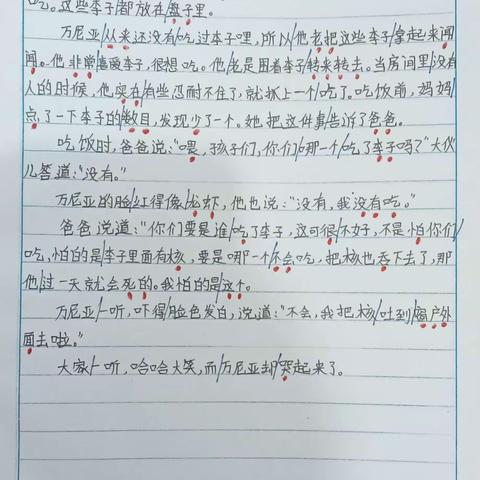 吃。这些李子都放在盘子里。
万尼亚从来还没有吃过李子哩,所以他老把这些李子拿起来闻
闻。他非常喜爱李子,很想吃。他老是围着李子转来转去。当房间里没有
人的时候,他实在有些忍耐不住了,就抓上一个吃了。吃饭前,妈妈
点了一下李子的数目,发现少了一个。她把这件事告诉了爸爸。
吃饭时,爸爸说:“喂,孩子们,你们哪一个吃了李子吗?”大伙
儿答道:“没有。”
万尼亚的脸红得像龙虾,他也说:“没有,我没有吃。”
爸爸说道:“你们要是谁吃了李子,这可很不好,不是怕你们
吃,怕的是李子里面有核,要是哪一个不会吃,把核也吞下去了,那
他过一天就会死的。我怕的是这个。
万尼亚一听,吓得脸色发白,说道:“不会,我把核吐到窗户外
面去啦。”
大家一听,哈哈大笑,而万尼亚却哭起来了。